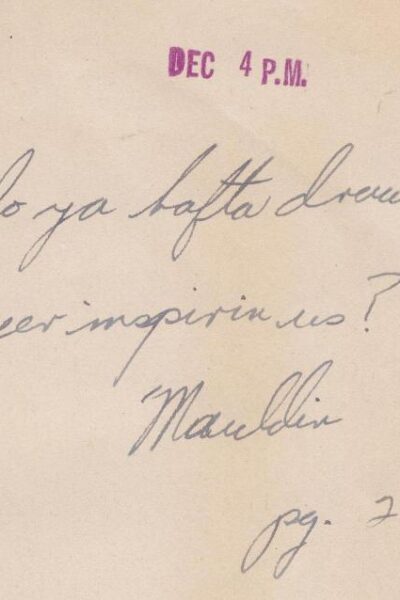 DEC 4 P.M.
do ya hafta draw
eer inspirin us?
Mauldin
pg. 2